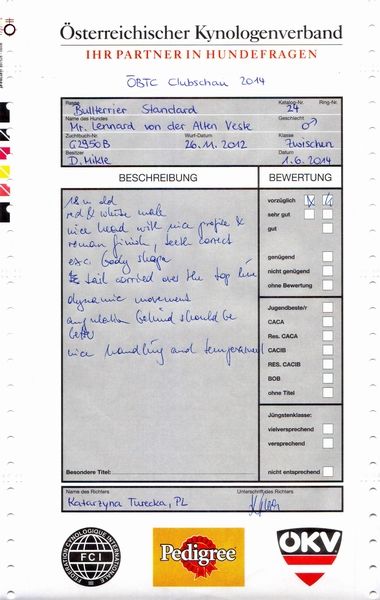 Österreichischer Kynologenverband
IHR PARTNER IN HUNDEFRAGEN
ÖBTC Clubschau 2014
Rasse Katalog-Nr. Ring-Nr.
Bullterrier Standard 24
Name des Hundes Geschlecht
Mr. Lennard von der Alten Veste ♂
Zuchtbuch-Nr. Wurf-Datum Klasse
G2950B 26.11.2012 Zwischen
Besitzer Datum
D. Mikle 1.6.2014
BESCHREIBUNG BEWERTUNG
18 m old
red & white male
nice head with nice profile &
roman finish, teeth correct
exc. body shape
tail carried over the top line
dynamic movement
angulation behind should be
better
nice handling and temperament
vorzüglich
sehr gut
gut
genügend
nicht genügend
ohne Bewertung
Jugendbeste/r
CACA
Res. CACA
CACIB
RES. CACIB
BOB
ohne Titel
Jüngstenklasse:
vielversprechend
versprechend
nicht entsprechend
Besondere Titel:
Name des Richters Unterschrift des Richters
Katarzyna Turecka, PL
FEDERATION CYNOLOGIQUE INTERNATIONALE
FCI
Pedigree
ÖKV